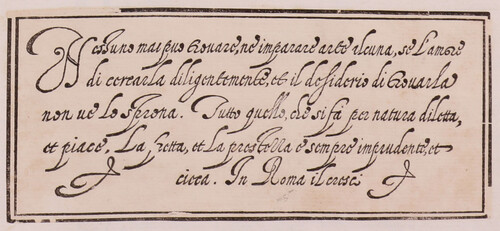 Nessuno mai può trovare, ne imparare arte alcuna, se l'amore
di cercarla diligentemente, et il desiderio di trovarla
non ve lo sprona. Tutto quello, che si fà per natura diletta,
et piace, La fretta, et la prestezza è sempre imprudente, et
cieca. In Roma il cresci